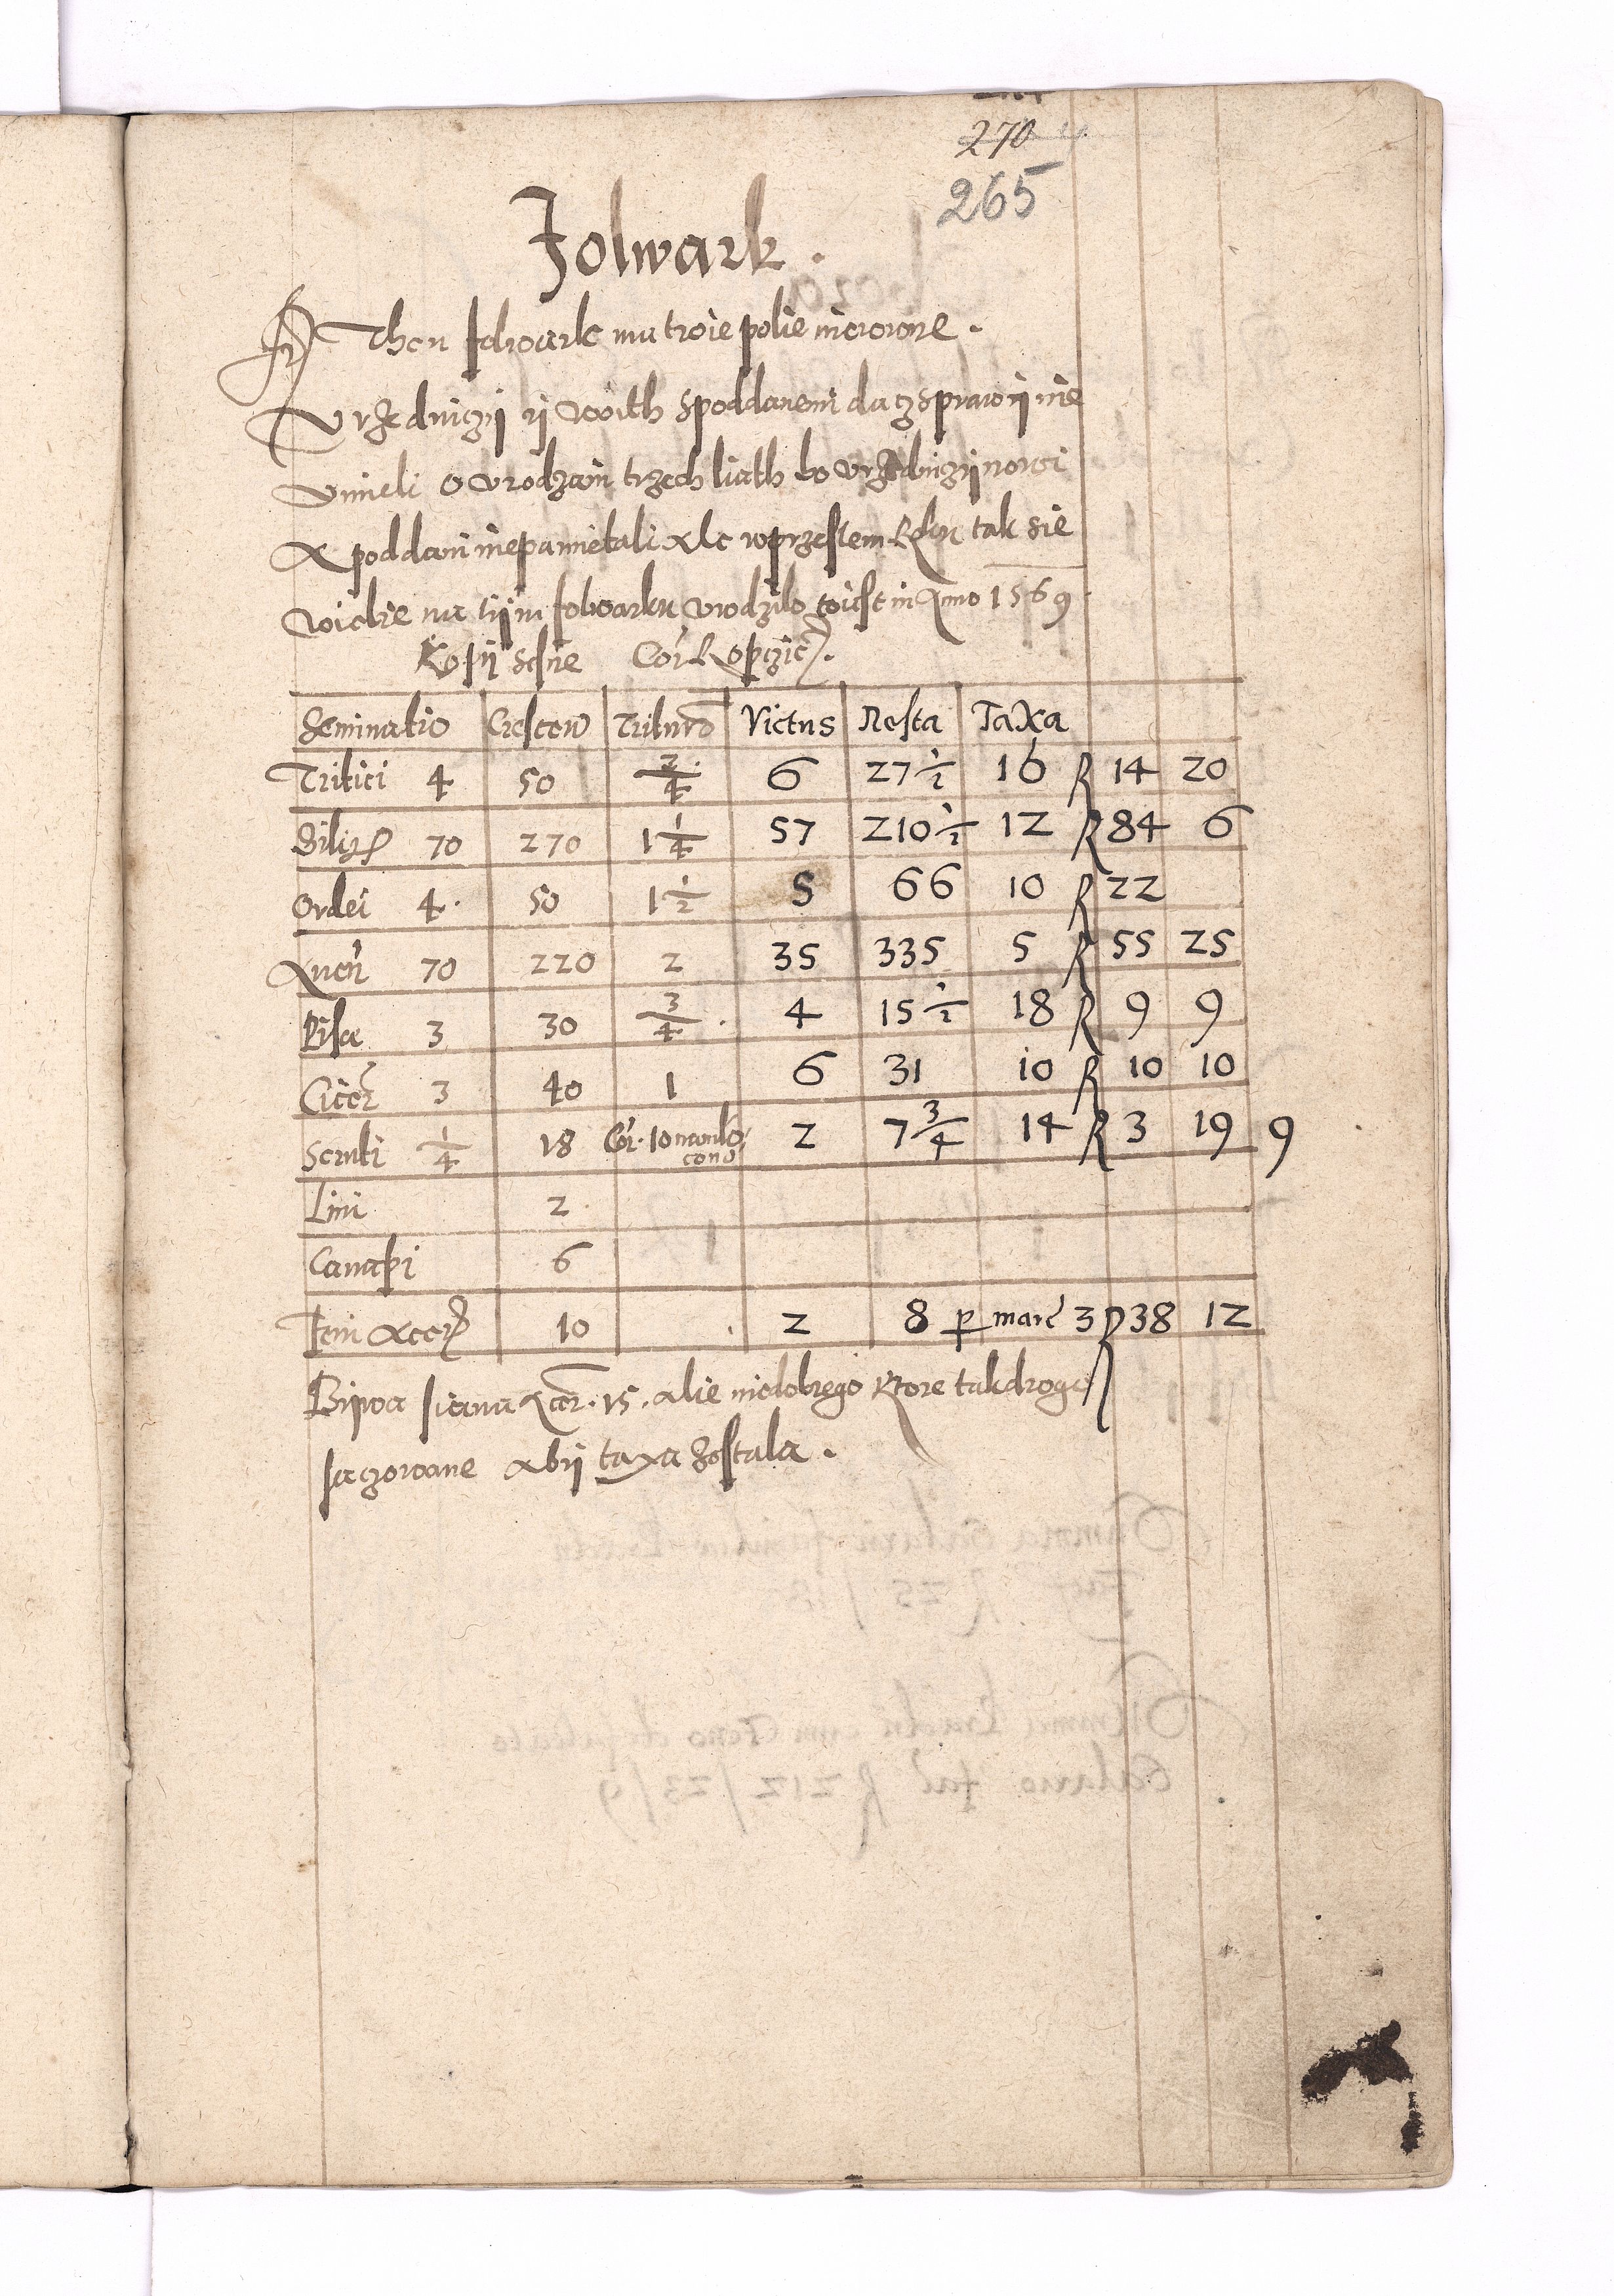 270
265
Folwark.
Then folwark ma troie polie nierowne.
Vrzedniczÿ ÿ woith spoddanemi da czsprawÿ nie
vmieli o vrodzaiu trzech liath bo vrzedniczÿ nowi
A poddani niepamietali Ale wprzeslem Roku tak sie
wiele na tÿm folwarku vrodzilo toiest in Anno 1569.
Kopÿ Cor
Seminatio Crescen Tritura Victus Resta Taxa
Tritici 4 50 2/4 6 27 1/2 16 R 14 20
Siligis 70 270 1 1/4 57 210 1/2 12 R 84 6
Ordei 4. 50 1 1/2 5 66 10 R 22
Auen 70 220 2 35 335 5 R 55 25
Pisae 3 30 3/4. 4 15 1/2 18 R 9 9
Cicer 3 40 1 6 31 10 R 10 10
1/4 18 Cor. 10 2 7 3/4 14 R 3 19 9
Lini 2.
Canapi 6
Feni Acer 10 2 8 p marc 3 R 38 12
Bÿwa siana Acer. 15. Alie niedobrego ktore takdrogo
saczowane Abÿ taxa zostala.